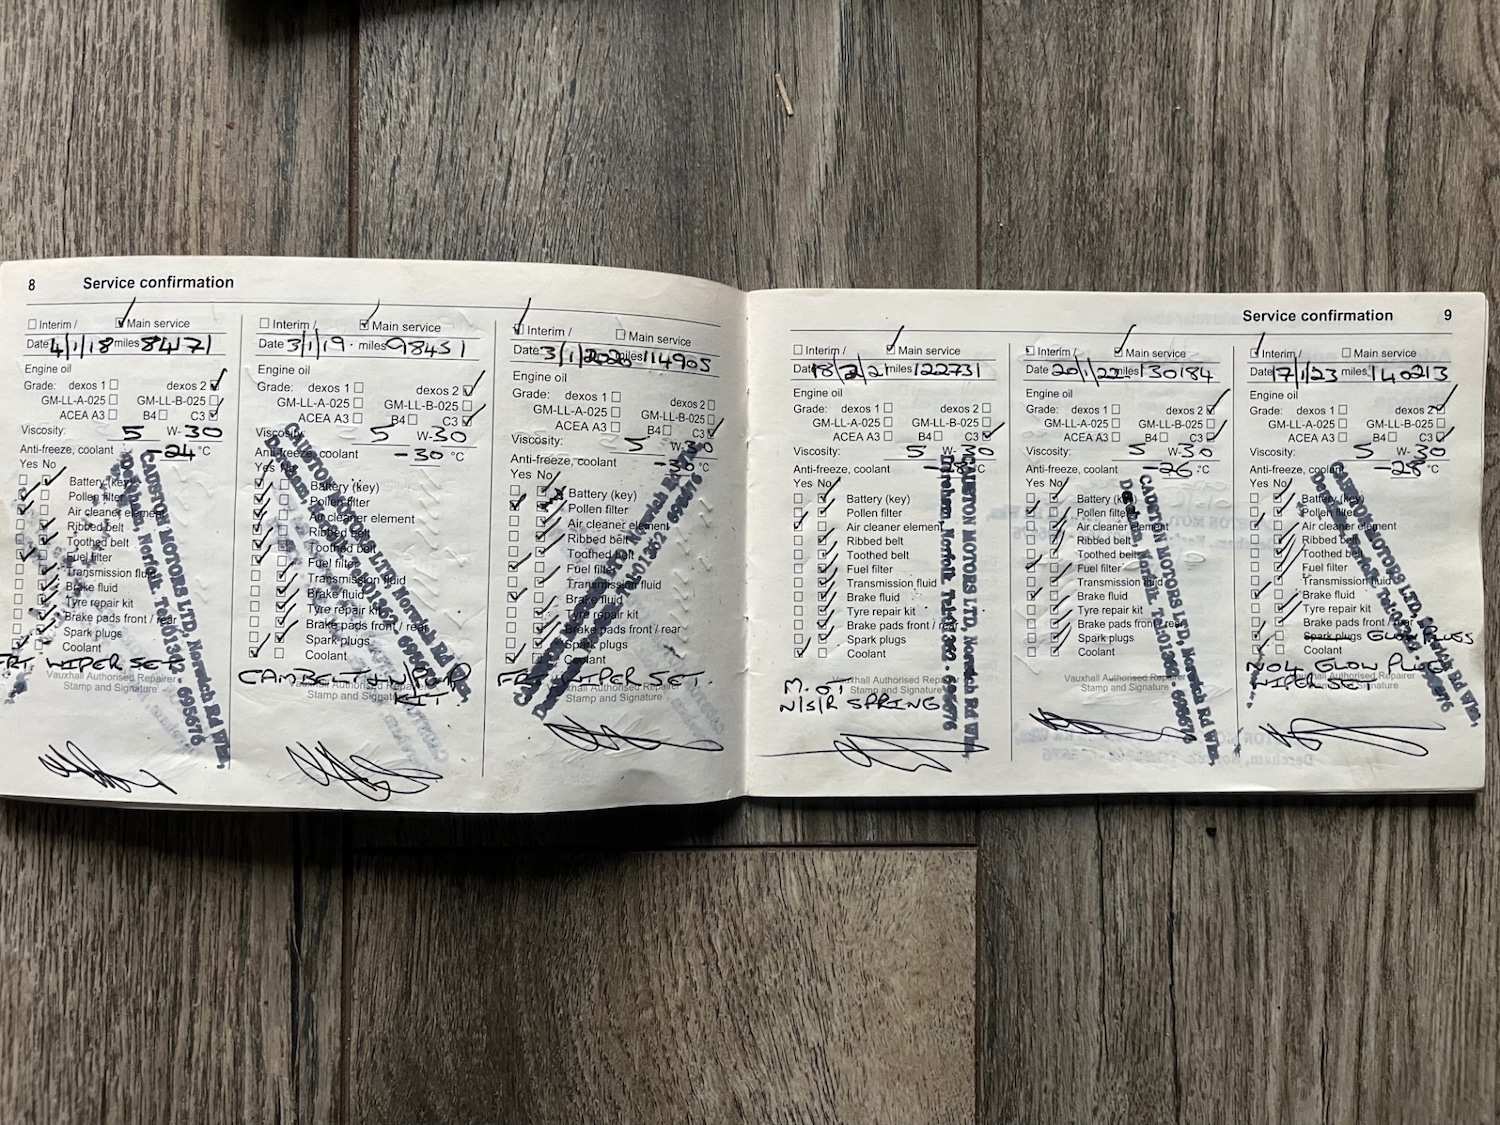 8 Service confirmation
Interim / Main service
Date 4/1/18 miles 84171
Engine oil
Grade: dexos 1 dexos 2
GM-LL-A-025 GM-LL-B-025
ACEA A3 B4 C3
Viscosity: 5 W-30
Anti-freeze, coolant -24 °C
Yes No
Battery (key)
Pollen filter
Air cleaner element
Ribbed belt
Toothed belt
Fuel filter
Transmission fluid
Brake fluid
Tyre repair kit
Brake pads front / rear
Spark plugs
Coolant
FRT WIPER SET
Vauxhall Authorised Repairer
Stamp and Signature
CAUSTON MOTORS LTD, Norwich Rd Wks,
Dereham, Norfolk. Tel:01362 - 695676
Interim / Main service
Date 3/1/19 miles 98451
Engine oil
Grade: dexos 1 dexos 2
GM-LL-A-025 GM-LL-B-025
ACEA A3 B4 C3
Viscosity: 5 W-30
Anti-freeze, coolant -30 °C
Yes No
Battery (key)
Pollen filter
Air cleaner element
Ribbed belt
Toothed belt
Fuel filter
Transmission fluid
Brake fluid
Tyre repair kit
Brake pads front / rear
Spark plugs
Coolant
CAMBELT W/PUMP
KIT.
Vauxhall Authorised Repairer
Stamp and Signature
CAUSTON MOTORS LTD, Norwich Rd Wks,
Dereham, Norfolk.
Interim / Main service
Date 3/1/2020 miles 114905
Engine oil
Grade: dexos 1 dexos 2
GM-LL-A-025 GM-LL-B-025
ACEA A3 B4 C3
Viscosity: 5 W-30
Anti-freeze, coolant °C
Yes No
Battery (key)
Pollen filter
Air cleaner element
Ribbed belt
Toothed belt
Fuel filter
Transmission fluid
Brake fluid
Tyre repair kit
Brake pads front / rear
Spark plugs
Coolant
FRT WIPER SET.
Vauxhall Authorised Repairer
Stamp and Signature
Service confirmation 9
Interim / Main service
Date 18/2/21 miles 122731
Engine oil
Grade: dexos 1 dexos 2
GM-LL-A-025 GM-LL-B-025
ACEA A3 B4 C3
Viscosity: 5 W-30
Anti-freeze, coolant -28 °C
Yes No
Battery (key)
Pollen filter
Air cleaner element
Ribbed belt
Toothed belt
Fuel filter
Transmission fluid
Brake fluid
Tyre repair kit
Brake pads front / rear
Spark plugs
Coolant
M.O.T
N/S/R SPRING
Vauxhall Authorised Repairer
Stamp and Signature
CAUSTON MOTORS LTD, Norwich Rd Wks,
Dereham, Norfolk. Tel:01362 - 695676
Interim / Main service
Date 20/1/22 miles 130184
Engine oil
Grade: dexos 1 dexos 2
GM-LL-A-025 GM-LL-B-025
ACEA A3 B4 C3
Viscosity: 5 W-30
Anti-freeze, coolant -26 °C
Yes No
Battery (key)
Pollen filter
Air cleaner element
Ribbed belt
Toothed belt
Fuel filter
Transmission fluid
Brake fluid
Tyre repair kit
Brake pads front / rear
Spark plugs
Coolant
Vauxhall Authorised Repairer
Stamp and Signature
CAUSTON MOTORS LTD, Norwich Rd Wks,
Dereham, Norfolk. Tel:01362 - 695676
Interim / Main service
Date 17/1/23 miles 140213
Engine oil
Grade: dexos 1 dexos 2
GM-LL-A-025 GM-LL-B-025
ACEA A3 B4 C3
Viscosity: 5 W-30
Anti-freeze, coolant -28 °C
Yes No
Battery (key)
Pollen filter
Air cleaner element
Ribbed belt
Toothed belt
Fuel filter
Transmission fluid
Brake fluid
Tyre repair kit
Brake pads front / rear
Spark plugs GLOW PLUGS
Coolant
NO4 GLOW PLUG
WIPER SET
Vauxhall Authorised Repairer
Stamp and Signature
CAUSTON MOTORS LTD, Norwich Rd Wks,
Dereham, Norfolk